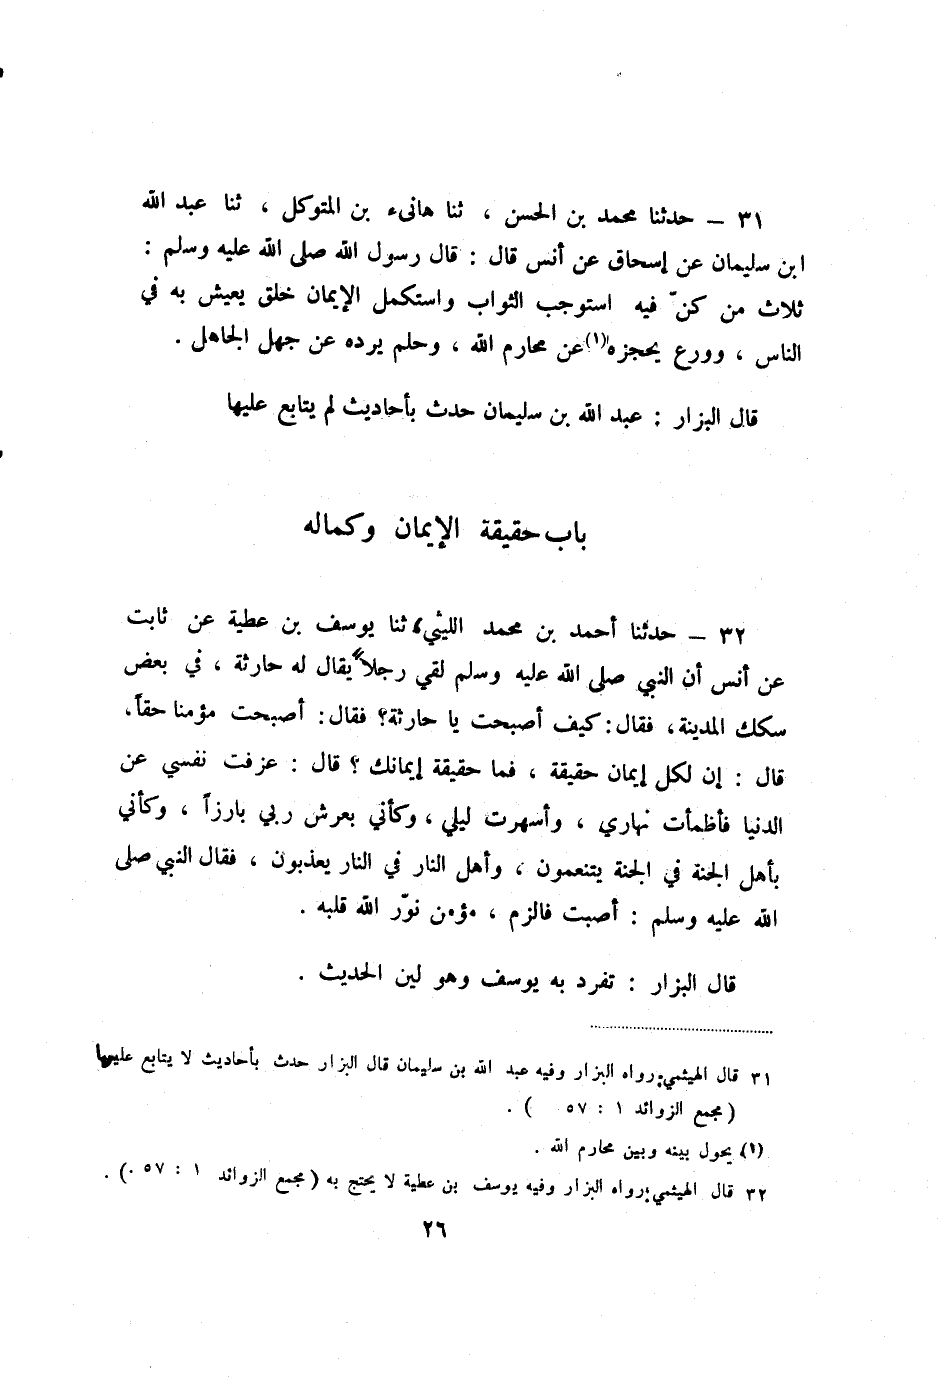 ٣١ – حدثنا محمد بن الحسن ، ثنا هانىء بن المتوكل ، ثنا عبد الله
ابن سليمان عن إسحاق عن أنس قال : قال رسول الله صلى الله عليه وسلم :
ثلاث من كنّ فيه استوجب الثواب واستكمل الإيمان خلق يعيش به في
الناس ، وورع يحجزه(١) عن محارم الله ، وحلم يرده عن جهل الجاهل .
قال البزار : عبد الله بن سليمان حدث بأحاديث لم يتابع عليها
باب حقيقة الإيمان وكماله
٣٢ – حدثنا أحمد بن محمد الليثي، ثنا يوسف بن عطية عن ثابت
عن أنس أن النبي صلى الله عليه وسلم لقي رجلاً يقال له حارثة ، في بعض
سكك المدينة، فقال: كيف أصبحت يا حارثة؟ فقال: أصبحت مؤمنا حقاً،
قال : إن لكل إيمان حقيقة ، فما حقيقة إيمانك ؟ قال : عزفت نفسي عن
الدنيا فأظمأت نهاري ، وأسهرت ليلي ، وكأني بعرش ربي بارزاً ، وكأني
بأهل الجنة في الجنة يتنعمون ، وأهل النار في النار يعذبون ، فقال النبي صلى
الله عليه وسلم : أصبت فالزم ، مؤمن نوّر الله قلبه .
قال البزار : تفرد به يوسف وهو لين الحديث .
٣١ قال الهيثمي: رواه البزار وفيه عبد الله بن سليمان قال البزار حدث بأحاديث لا يتابع عليها
( مجمع الزوائد ١ : ٥٧ ) .
(١) يحول بينه وبين محارم الله .
٣٢ قال الهيثمي: رواه البزار وفيه يوسف بن عطية لا يحتج به ( مجمع الزوائد ١ : ٥٧ ) .
٢٦